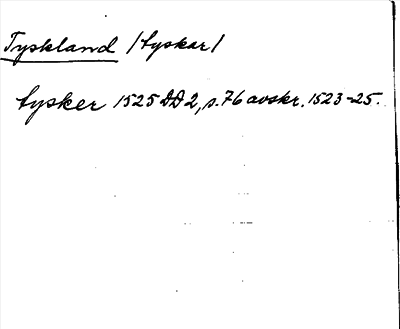 Tyskland /tyskar/
tysker 1525 DD 2, s. 76 avskr. 1523-25.